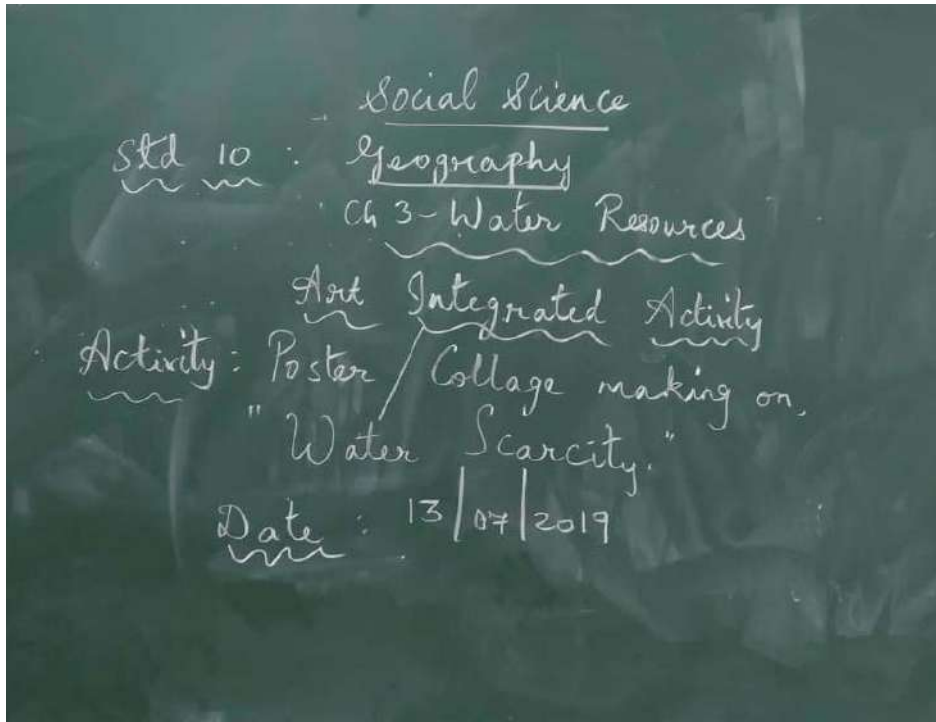 Social Science
Std 10 : Geography
Ch 3 - Water Resources
Art Integrated Activity
Activity : Poster / Collage making on,
"Water Scarcity."
Date : 13/07/2019